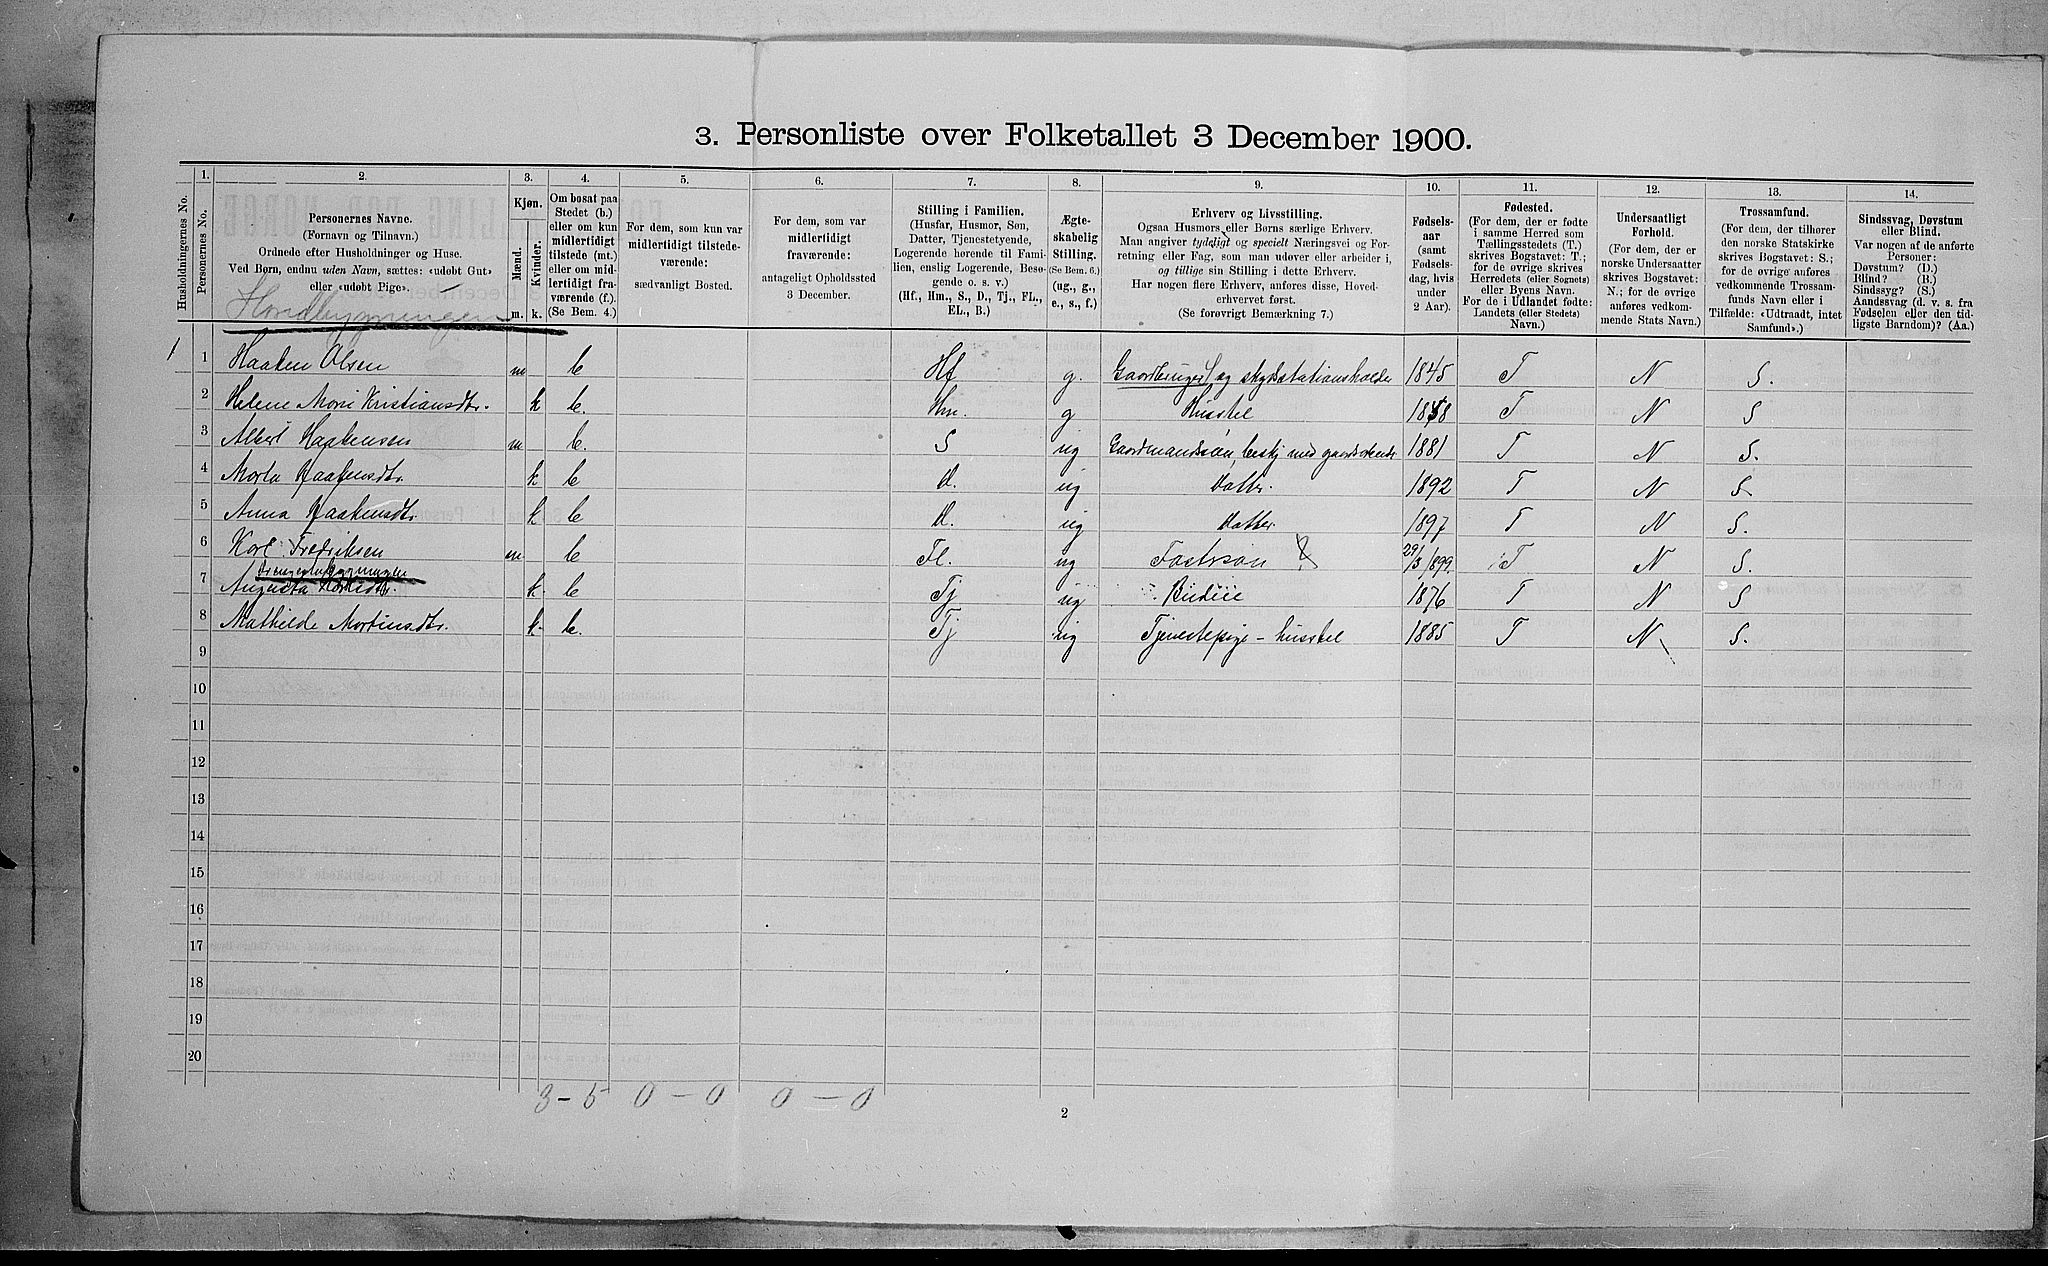 3. Personliste over Folketallet 3 December 1900.
1. 2. 3. 4. 5. 6. 7. 8. 9. 10. 11. 12. 13. 14.
Husholdningernes No.
Personernes No.
Personernes Navne.
(Fornavn og Tilnavn.)
Ordnede efter Husholdninger og Huse.
Ved Børn, endnu uden Navn, sættes: «udøbt Gut»
eller «udøbt Pige».
Kjøn.
Mænd. Kvinder.
m. k.
Om bosat paa
Stedet (b.)
eller om kun
midlertidigt
tilstede (mt.)
eller om mid-
lertidigt fra-
værende (f.).
(Se Bem. 4.)
For dem, som kun var
midlertidigt tilstede-
værende:
sædvanligt Bosted.
For dem, som var
midlertidigt
fraværende:
antageligt Opholdssted
3 December.
Stilling i Familien.
(Husfar, Husmor, Søn,
Datter, Tjenestetyende,
Logerende hørende til Fami-
lien, enslig Logerende, Besø-
gende o. s. v.)
(Hf., Hm., S., D., Tj., FL.,
EL., B.)
Ægte-
skabelig
Stilling.
(Se Bem. 6.)
(ug., g.,
e., s., f.)
Erhverv og Livsstilling.
Ogsaa Husmors eller Børns særlige Erhverv.
Man angiver tydeligt og specielt Næringsvei og For-
retning eller Fag, som man udøver eller arbeider i,
og tillige sin Stilling i dette Erhverv.
Har nogen flere Erhverv, anføres disse, Hoved-
erhvervet først.
(Se forøvrigt Bemærkning 7.)
Fødsels-
aar
(samt
Fødsels-
dag, hvis
under
2 Aar).
Fødested.
(For dem, der er fødte
i samme Herred som
Tællingsstedets (T.)
skrives Bogstavet: T.;
for de øvrige skrives
Herredets (eller Sognets)
eller Byens Navn.
For de i Udlandet fødte:
Landets (eller Stedets)
Navn.)
Undersaatligt
Forhold.
(For dem, der er
norske Undersaatter
skrives Bogstavet:
N.; for de øvrige
anføres vedkom-
mende Stats Navn.)
Trossamfund.
(For dem, der tilhører
den norske Statskirke
skrives Bogstavet: S.;
for de øvrige anføres
vedkommende Trossam-
funds Navn eller i
Tilfælde: «Udtraadt, intet
Samfund».)
Sindssvag, Døvstum
eller Blind.
Var nogen af de anførte
Personer:
Døvstum? (D.)
Blind? (B.)
Sindssyg? (S.)
Aandssvag (d. v. s. fra
Fødselen eller den tid-
ligste Barndom)? (Aa.)
Hovedbygningen
1 1 Haaken Olsen m b Hf g. Gaardbruger og skydsstationsholder 1845 T N S.
2 Helene Marie Kristiansdtr. k b. Hm. g Husstel 1858 T N S
3 Albert Haakensen m b. S ug Gaardmandssøn, besk. med gaardsarbeide 1881 T N S.
4 Marta Haakensdtr. k b d. ug Datter. 1892 T N S
5 Anna Haakensdtr. k b d. ug Datter 1897 T N S.
6 Karl Fredriksen m b Fl. ug Fostersøn 29/3 1899. T N S.
7 Augusta k b Tj ug Budeie 1876 T N S
8 Mathilde Martinsdtr. k b. Tj ug Tjenestepige - husstel 1885 T N S.
9
10
11
12
13
14
15
16
17
18
19
20
3 - 5 0 - 0 0 - 0
2